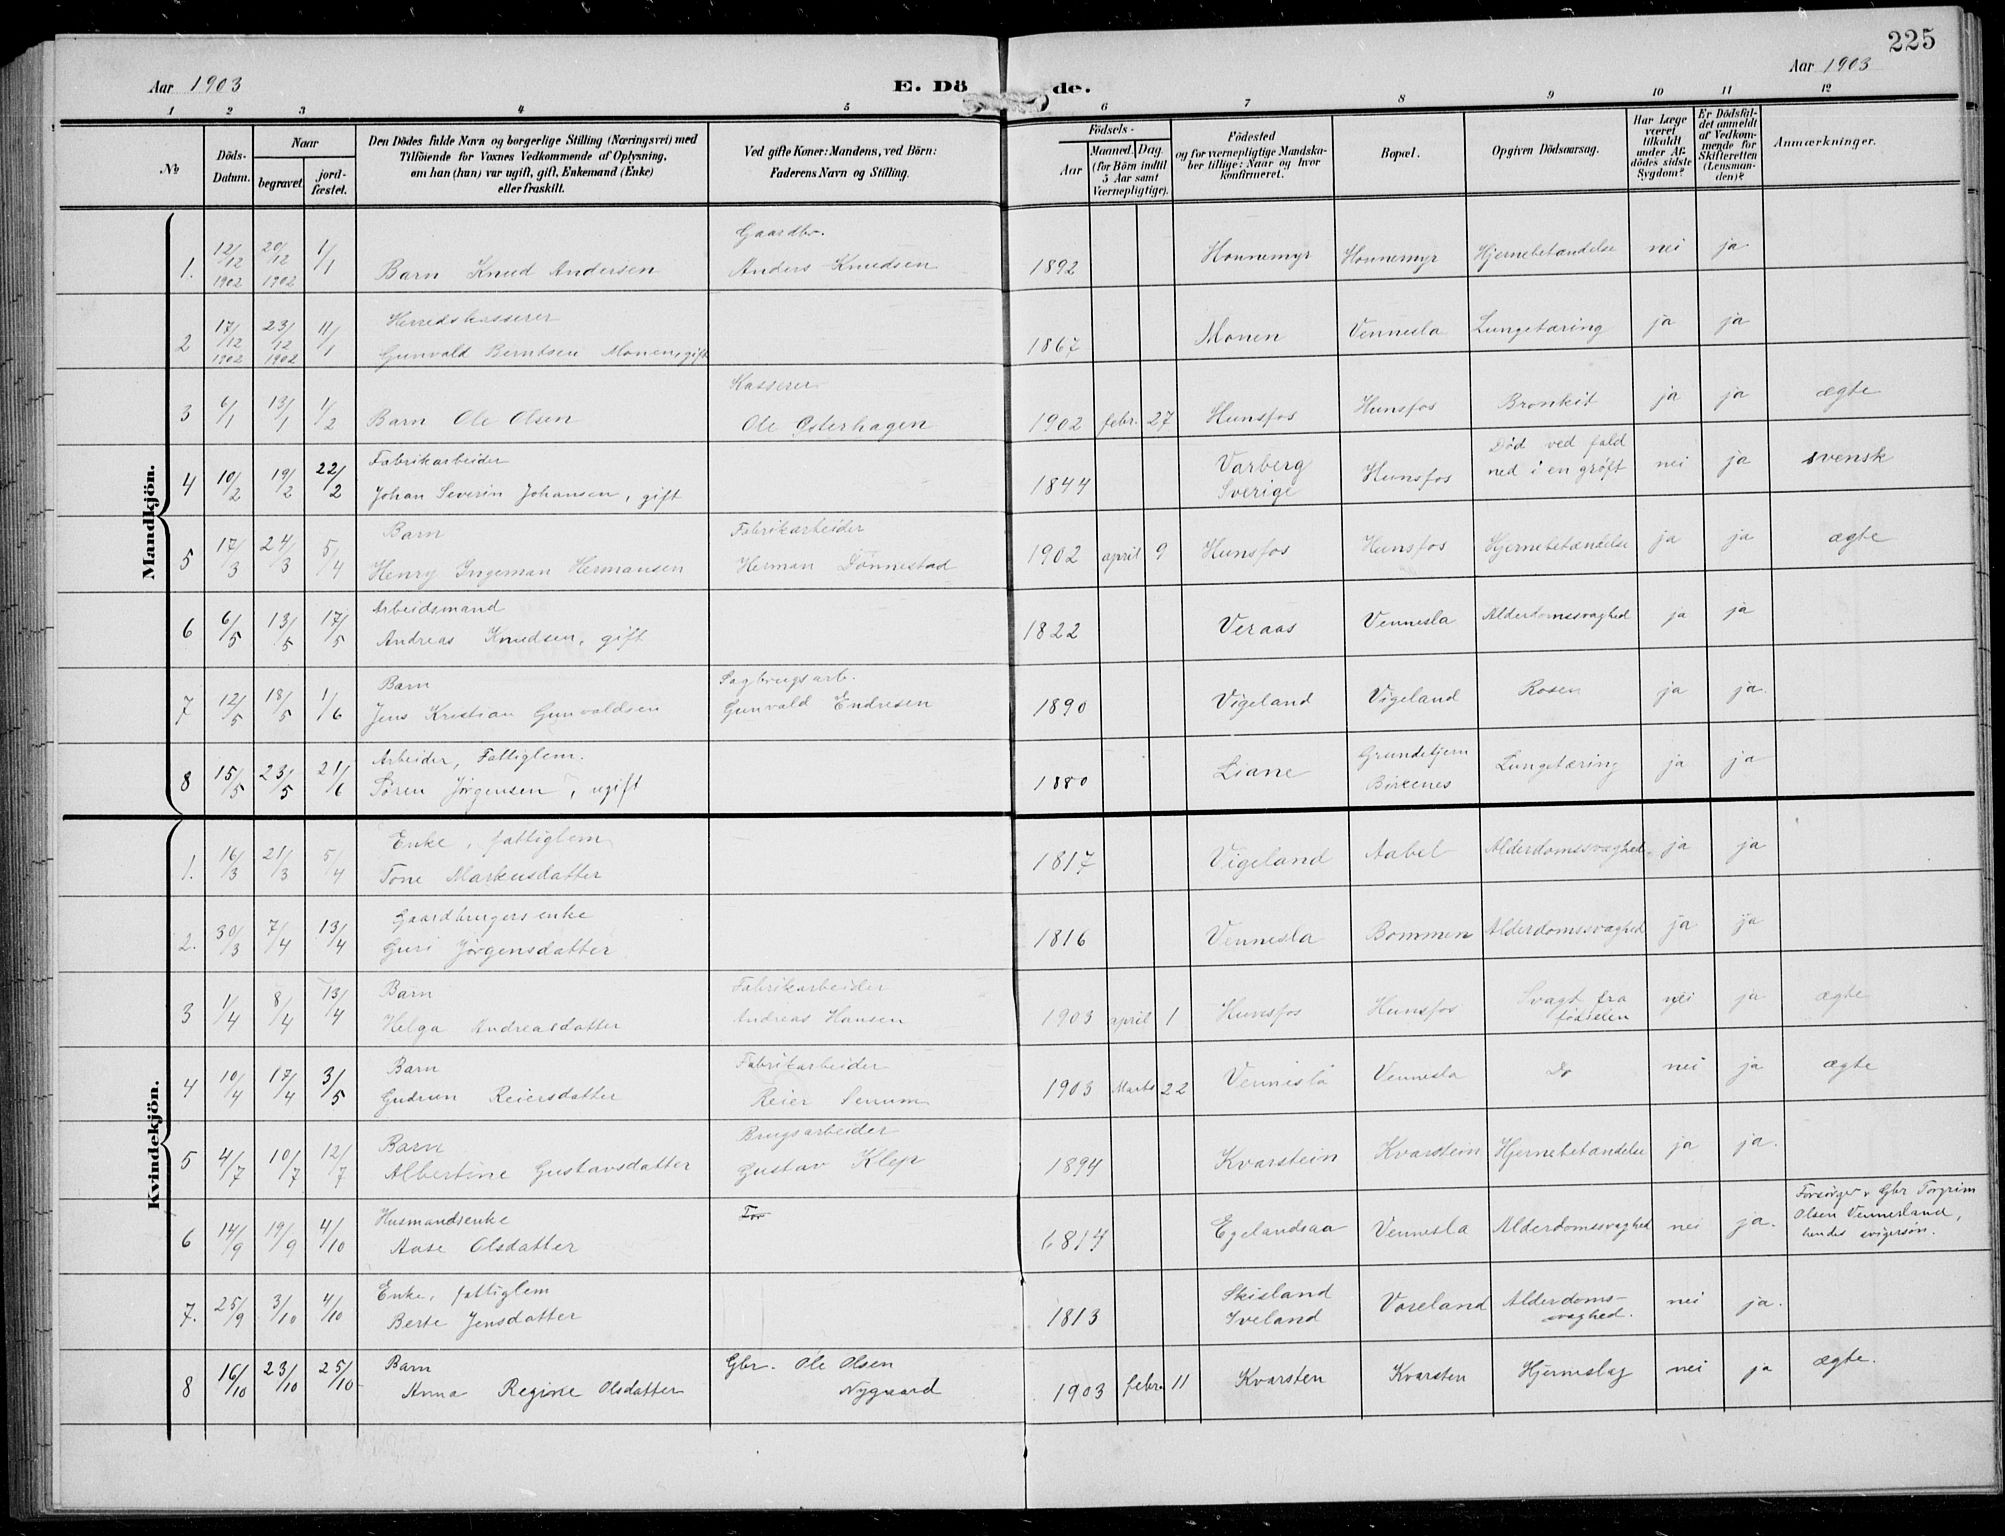 225
Aar 1903
E. Dö
de.
Aar 1903
1 2 3 4 5 6 7 8 9 10 11 12
No
Döds-
Datum.
Naar
begravet.
jord-
fæstet.
Den Dödes fulde Navn og borgerlige Stilling (Næringsvei) med
Tilföiende for Voxnes Vedkommende af Oplysning,
om han (hun) var ugift, gift, Enkemand (Enke)
eller fraskilt.
Ved gifte Koner: Mandens, ved Börn:
Faderens Navn og Stilling.
Födsels-
Aar
Maaned. Dag.
(for Börn indtil
5 Aar samt
Værnepligtige).
Födested
og for værnepligtige Mandska-
ber tillige: Naar og hvor
konfirmeret.
Bopæl.
Opgiven Dödsaarsag.
Har Læge
været
tilkaldt
under Af-
dödes sidste
Sygdom?
Er Dödsfal-
det anmeldt
af Vedkom-
mende for
Skifteretten
(Lensman-
den)?
Anmærkninger.
Mandkjön.
1. 12/12 1902 20/12 1902 1/1 Barn Knud Andersen Gaardbr. Anders Knudsen 1892 Honnemyr Honnemyr Hjernebetændelse nei ja
2 17/12 1902 23/12 1902 11/1 Herredskasserer Gunvald Berntsen Monen, gift 1867 Monen Vennesla Lungetæring ja ja
3 6/1 13/1 1/2 Barn Ole Olsen Kasserer Ole Østerhagen 1902 febr. 27 Hunsfos Hunsfos Bronkit ja ja ægte
4 10/2 19/2 22/2 Fabrikarbeider Johan Severin Johansen, gift 1844 Varberg Sverige Hunsfos Død ved fald ned i en grøft nei ja svensk
5 17/3 24/3 5/4 Barn Henry Ingeman Hermansen Fabrikarbeider Herman Dønnestad 1902 april 9 Hunsfos Hunsfos Hjernebetændelse ja ja ægte
6 6/5 13/5 17/5 Arbeidsmand Andreas Knudsen, gift 1822 Veraas Vennesla Alderdomssvaghed ja ja
7 12/5 18/5 1/6 Barn Jens Kristian Gunvaldsen Sagbrugsarb. Gunvald Endresen 1890 Vigeland Vigeland Rosen ja ja.
8 15/5 23/5 21/6 Arbeider, Fattiglem. Søren Jørgensen, ugift 1880 Liane Grundetjern Birkenes Lungetæring ja ja
Kvindekjön.
1. 16/3 21/3 5/4 Enke, fattiglem Tone Markusdatter 1817 Vigeland Aabel Alderdomssvaghed. ja ja
2. 30/3 7/4 13/4 Gaardbrugers enke Guri Jørgensdatter 1816 Vennesla Bommen Alderdomssvaghed ja ja
3 1/4 8/4 13/4 Barn Helga Andreasdatter Fabrikarbeider Andreas Hansen 1903 april 1 Hunsfos Hunsfos Svagt fra fødselen nei ja ægte
4 10/4 17/4 3/5 Barn Gudrun Reiersdatter Fabrikarbeider Reier 1903 Marts 22 Vennesla Vennesla Do nei ja ægte
5 4/7 10/7 12/7 Barn Albertine Gustavsdatter Brugsarbeider Gustav Klep 1894 Kvarstein Kvarstein Hjernebetændelse ja ja.
6 14/9 19/9 4/10 Husmandsenke Aase Olsdatter Tor Egelandsaa Vennesla Alderdomssvaghed nei ja. Forsørges v Gbr Torgrim Olsen Vennesland, hendes svigersøn.
7. 25/9 3/10 4/10 Enke, fattiglem Berte Jensdatter 1813 Skisland Iveland Voreland Alderdoms-svaghed. nei ja.
8 16/10 23/10 25/10 Barn Anna Regine Olsdatter Gbr. Ole Olsen Nygaard 1903 febr. 11 Kvarsten Kvarsten Hjerneslag nei ja ægte.